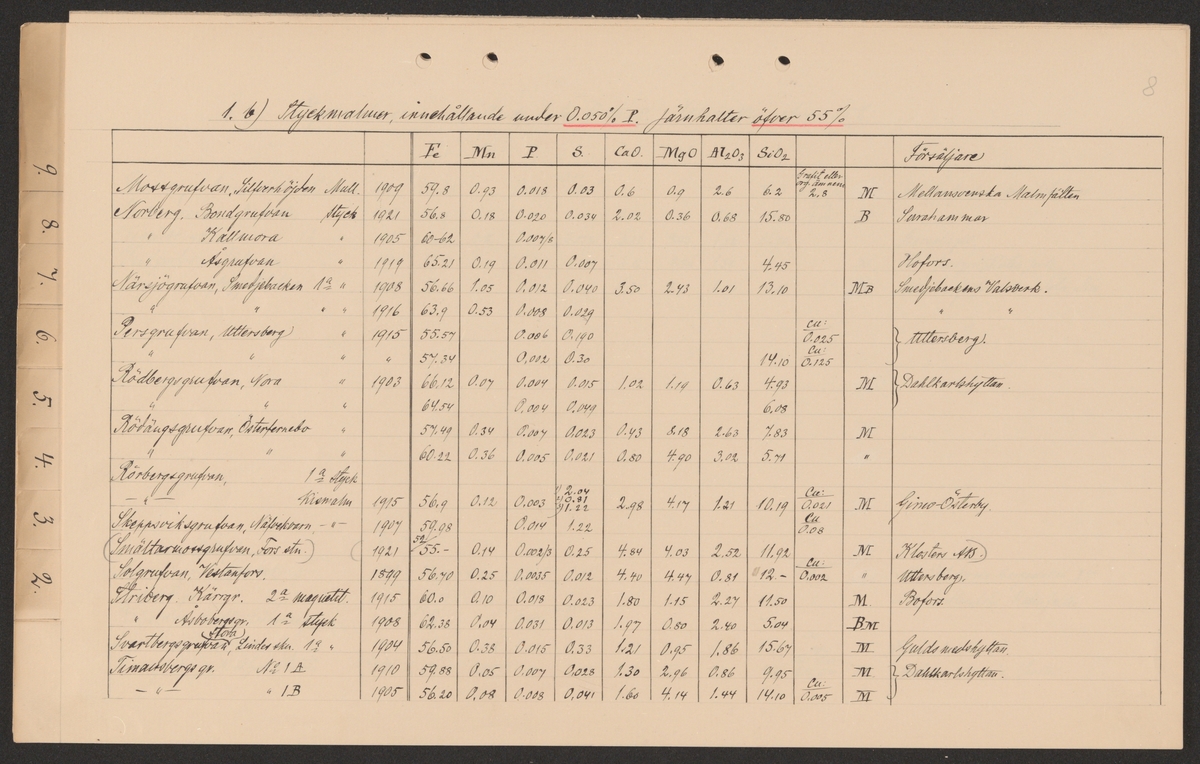 8
1. b) Styckmalmer, innehållande under 0.050% P. Järnhalter öfver 55%
Fe Mn P S. CaO. MgO Al2O3 SiO2 Försäljare
Mossgrufvan, Mull. 1909 59.8 0.93 0.018 0.03 0.6 0.9 2.6 6.2 Grafit eller org. ämnen: 2.8 M Mellansvenska Malmfälten
Norberg, Bondgrufvan Styck 1921 56.8 0.18 0.020 0.034 2.02 0.36 0.68 15.80 B Surahammar
" Kallmora " 1905 60-62 0.007/8
" Åsgrufvan " 1919 65.21 0.19 0.011 0.007 4.45 Hofors.
Närsjögrufvan, Smedjebacken 1a " 1908 56.66 1.05 0.012 0.040 3.50 2.43 1.01 13.10 MB Smedjebackens Valsverk.
" " " " 1916 63.9 0.53 0.008 0.029 " "
Persgrufvan, Uttersberg " 1915 55.57 0.006 0.190 Cu: 0.025 Uttersberg.
" " " " 57.34 0.002 0.30 14.10 Cu: 0.125
Rödbergsgrufvan, Nora " 1903 66.12 0.07 0.004 0.015 1.02 1.19 0.63 4.93 M Dahlkarlshyttan.
" " " 64.54 0.004 0.049 6.08
Rödängsgrufvan, Österfernebo " 57.49 0.34 0.007 0.023 0.43 3.18 2.63 7.83 M
" " " 60.22 0.36 0.005 0.021 0.80 4.90 3.02 5.71 "
Rörbergsgrufvan, 1a Styck
—"— Kismalm 1915 56.9 0.12 0.003 1) 2.04 2) 0.81 3) 1.22 2.98 4.17 1.21 10.19 Cu: 0.021 M Gimo-Österby
Skeppsviksgrufvan, Näfvekvarn —"— 1907 59.98 0.014 1.22 Cu 0.08
(Smältarmossgrufvan, Fors stn.) (1921 52/55.- 0.14 0.002/3 0.25 4.84 4.03 2.52 11.92 M Klosters AB.)
Solgrufvan, Vestanfors. 1899 56.70 0.25 0.0035 0.012 4.40 4.47 0.81 12.- Cu: 0.002 " Uttersberg.
Striberg. Kärrgr. 2a magnetit. 1915 60.0 0.10 0.018 0.023 1.80 1.15 2.27 11.50 M. Bofors.
" Åsbobergsgr. 1a Styck 1908 62.38 0.04 0.031 0.013 1.97 0.80 2.40 5.04 BM
Svartbergsgrufvan, Stora Linde stn. 1a " 1904 56.50 0.38 0.015 0.33 1.21 0.95 1.86 15.67 M Guldsmedshyttan.
Timansbergsgr. No 1A 1910 59.88 0.05 0.007 0.028 1.30 2.96 0.86 9.95 M Dahlkarlshyttan.
—"— " 1B 1905 56.20 0.08 0.008 0.041 1.60 4.14 1.44 14.10 Cu: 0.005 M
9.
8.
7.
6.
5.
4.
3.
2.